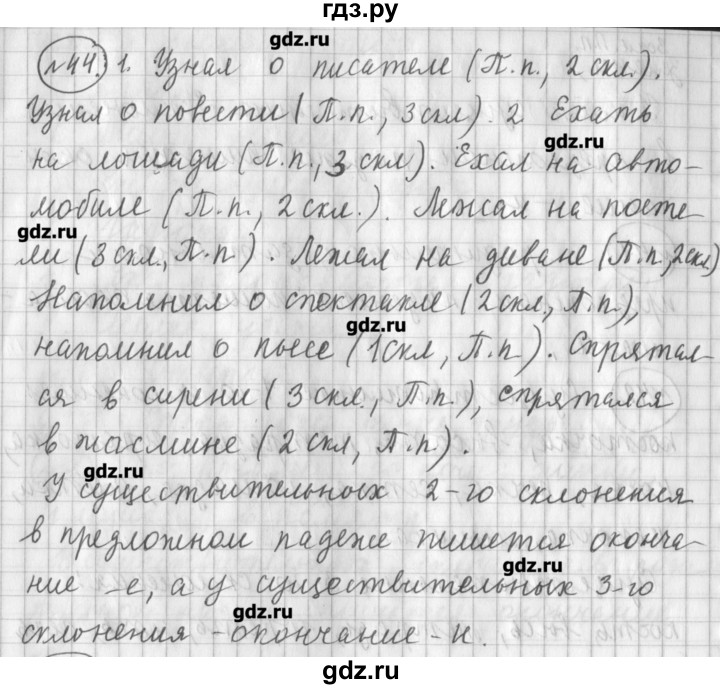 гдз.ру
gdz.ru
№44. 1. Узнал о писателе (П.п., 2 скл.).
Узнал о повести (П.п., 3 скл). 2 Ехать
gdz.ru
на лошади (П.п., 3 скл). Ехал на авто-
мобиле (П.п., 2 скл.). Лежал на посте-
gdz.ru
ли (3 скл., П.п). Лежал на диване (П.п, 2 скл)
Напомнил о спектакле (2 скл, П.п),
gdz.ru
напомнил о пьесе (1 скл, П.п). Спрятал-
ся в сирени (3 скл., П.п.), спрятался
gdz.ru
в жасмине (2 скл, П.п).
gdz.ru
У существительных 2-го склонения
в предложном падеже пишется оконча-
gdz.ru
ние -е, а у существительных 3-го
gdz.ru
склонения - окончание -и.
gdz.ru